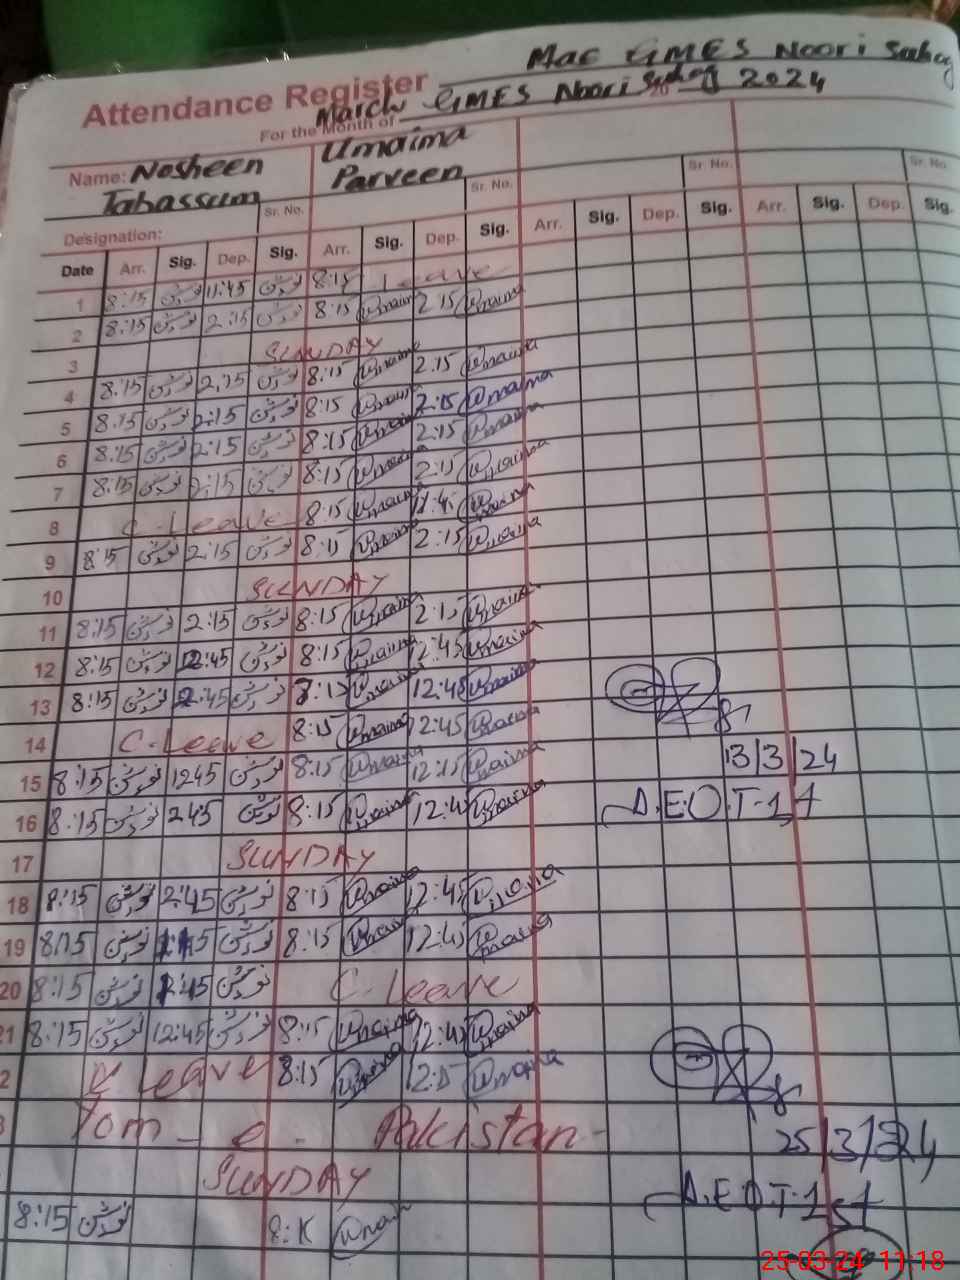 Mac GMES Noori Sahag
Attendance Register
For the Month of March GMES Noori Sahag 20 2024
Name: Nosheen Tabassum Umaima Parveen
Sr. No. Sr. No. Sr. No. Sr. No.
Designation:
Date Arr. Sig. Dep. Sig. Arr. Sig. Dep. Sig. Arr. Sig. Dep. Sig. Arr. Sig. Dep. Sig.
1 8:15 نورین 11:45 نورین 8:15 Leave
2 8:15 نورین 2:15 نورین 8:15 Umaima 2:15 Umaima
3 SUNDAY
4 8:15 نورین 2:15 نورین 8:15 Umaima 2:15 Umaima
5 8:15 نورین 2:15 نورین 8:15 Umaima 2:15 Umaima
6 8:15 نورین 2:15 نورین 8:15 Umaima 2:15 Umaima
7 8:15 نورین 2:15 نورین 8:15 Umaima 2:15 Umaima
8 C-Leave 8:15 Umaima Umaima
9 8:15 نورین 2:15 نورین 8:15 Umaima 2:15 Umaima
10 SUNDAY
11 8:15 نورین 2:15 نورین 8:15 Umaima 2:15 Umaima
12 8:15 نورین 12:45 نورین 8:15 Umaima 12:45 Umaima
13 8:15 نورین 2:45 نورین 8:15 Umaima 12:45 Umaima
14 C-Leave 8:15 Umaima 12:45 Umaima
15 8:15 نورین 1245 نورین 8:15 Umaima 12:15 Umaima
13/3/24
16 8:15 نورین 245 نورین 8:15 Umaima 12:45 Umaima
D.E.O.T-1st
17 SUNDAY
18 8:15 نورین 2:45 نورین 8:15 Umaima 12:45 Umaima
19 8:15 نورین نورین 8:15 Umaima 12:45 Umaima
20 8:15 نورین نورین C-Leave
21 8:15 نورین 12:45 نورین 8:15 Umaima 12:45 Umaima
2 Leave 8:15 Umaima Umaima
3 Yom-e-Pakistan
25/3/24
SUNDAY
D.E.O.T-1st
8:15 نورین Umaima
25-03-24 11:18